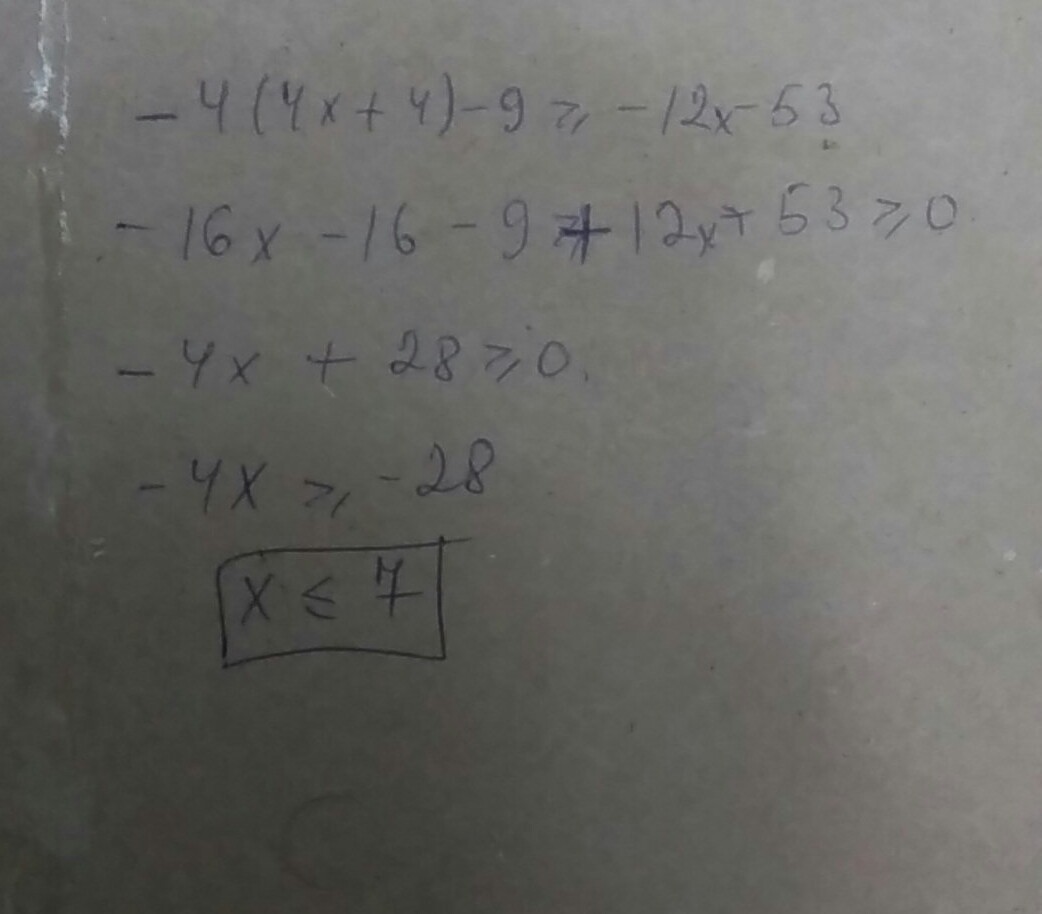 -4(4x+4)-9⩾-12x-53
-16x-16-9+12x+53⩾0
-4x+28⩾0.
-4x⩾-28
x≤7